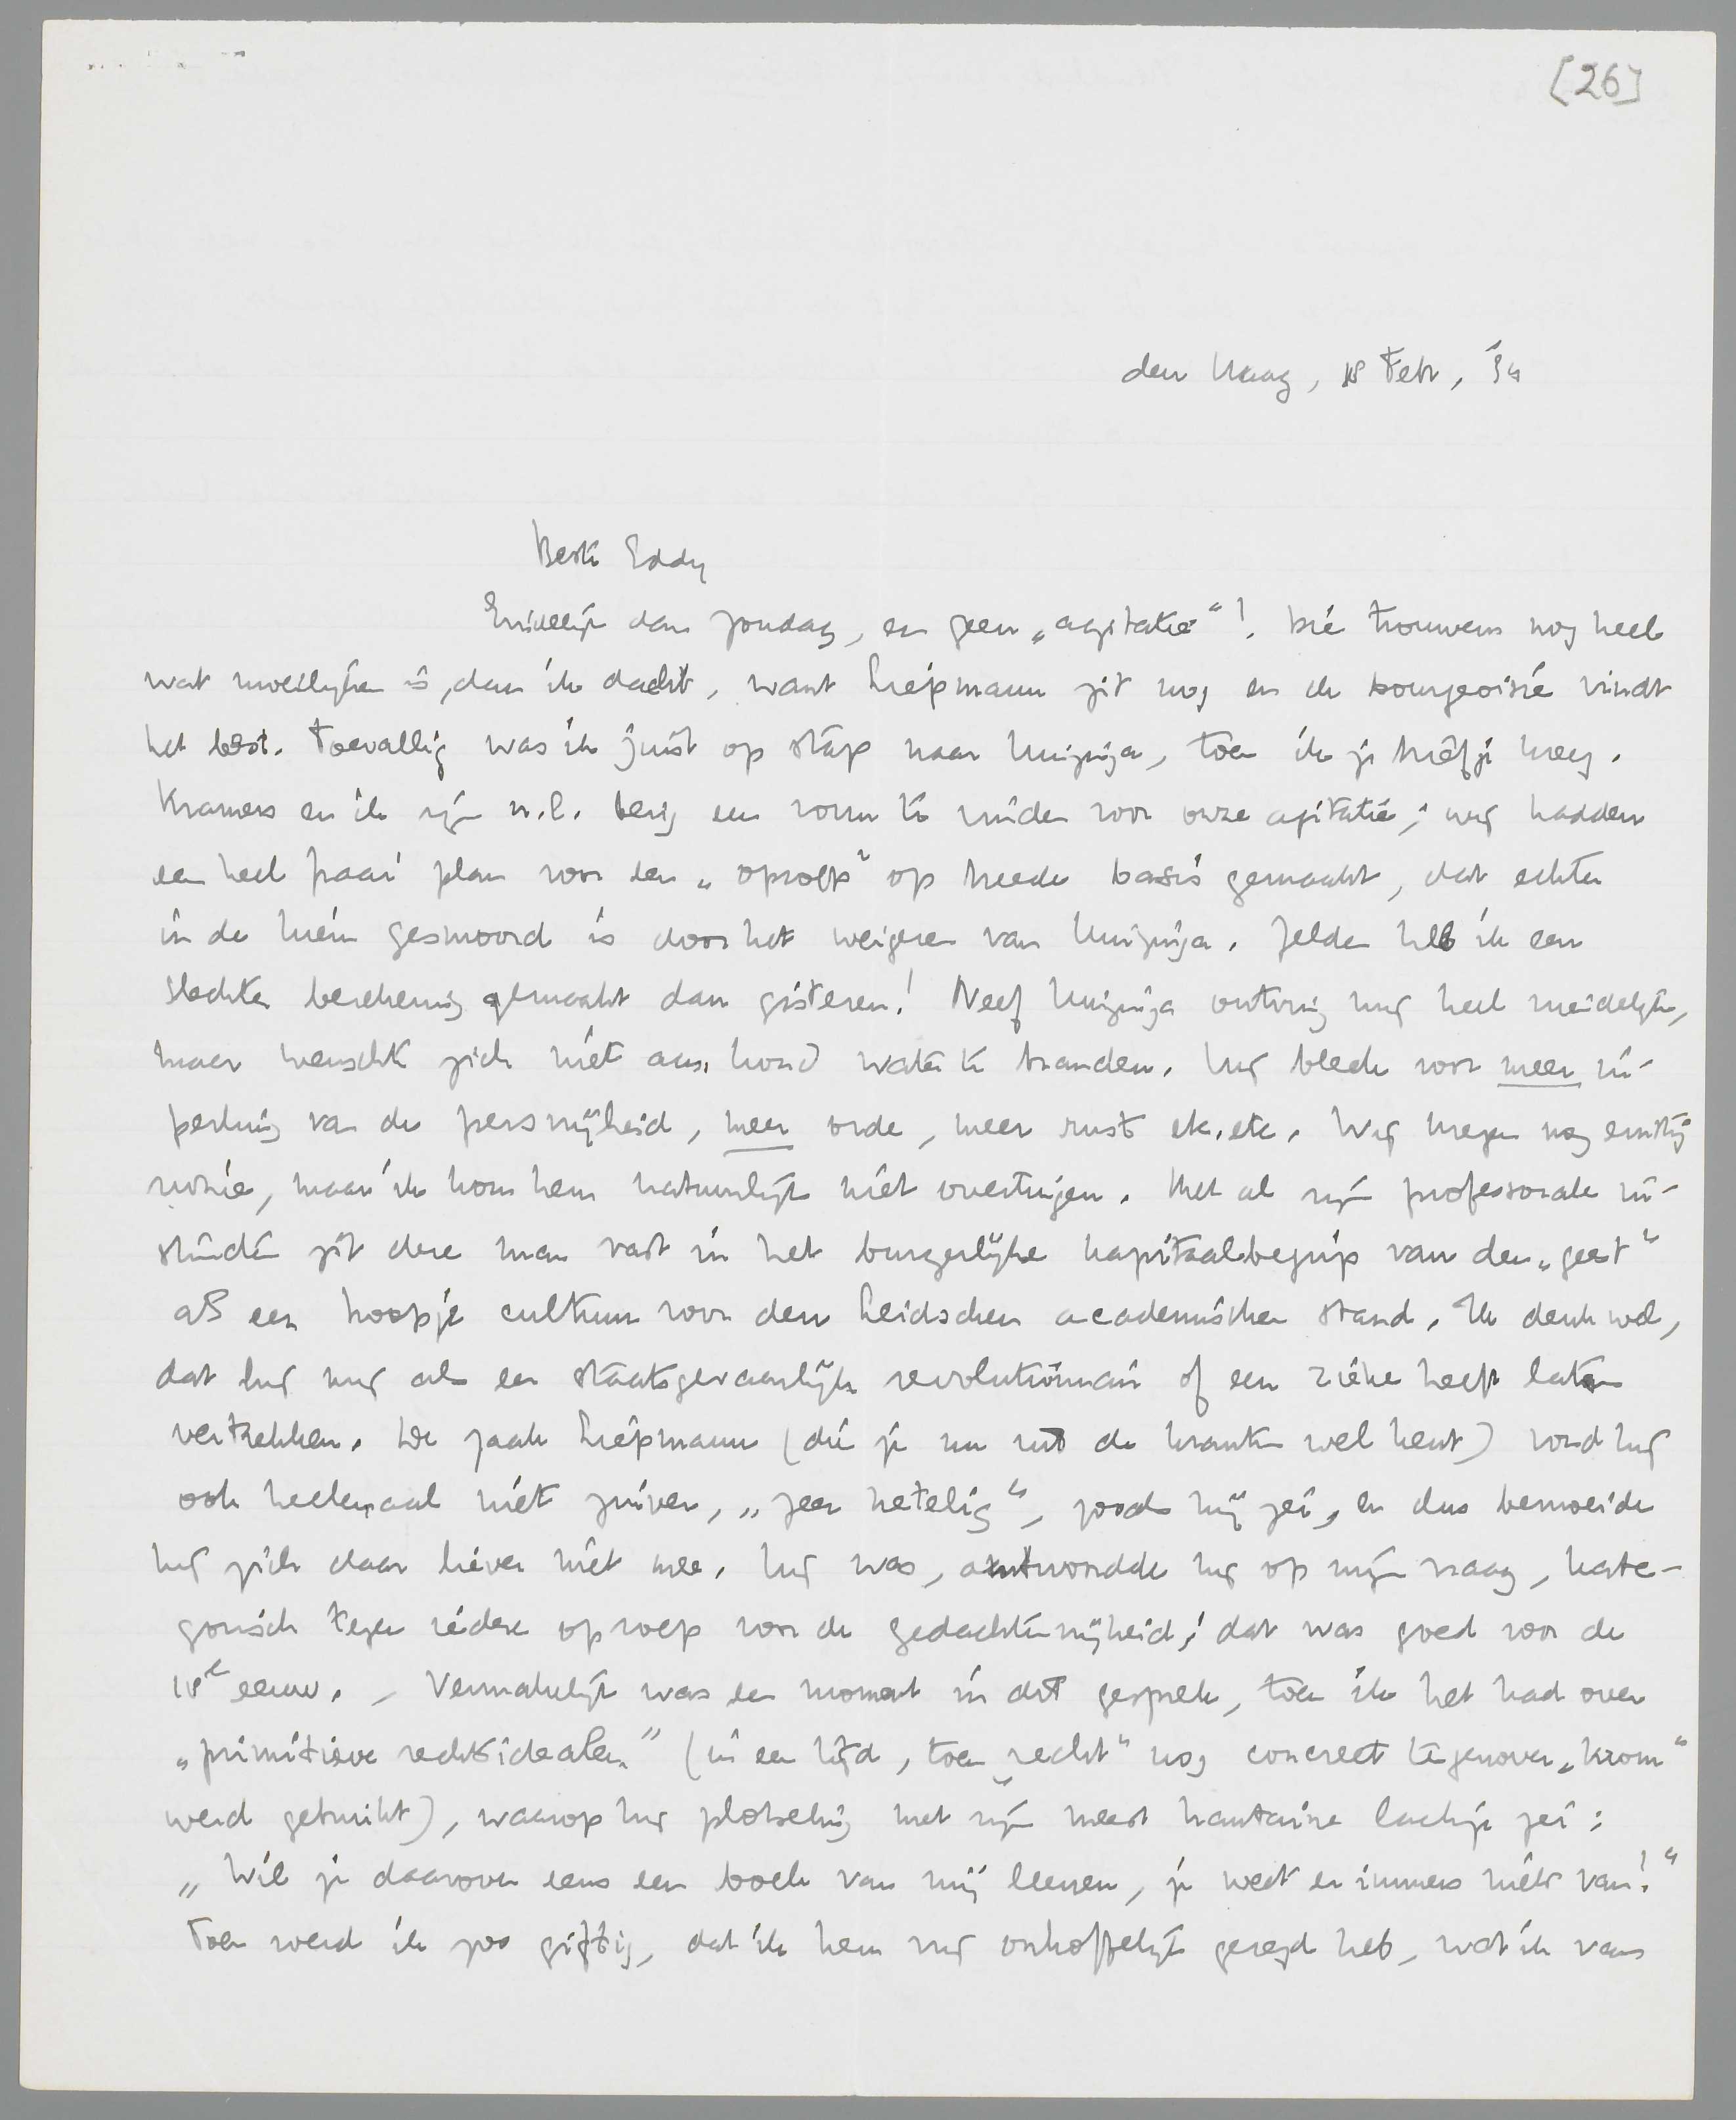 [26]
den Haag, 18 Febr, '34
Beste Eddy
Eindelijk dan Zondag, en geen „agitatie“! Die trouwens nog heel
wat moeilijker is, dan ik dacht, want Liepmann zit nog en de bourgeoisie vindt
het best. Toevallig was ik juist op stap naar Huizinga, toen ik je briefje kreeg.
Kramers en ik zijn n.l. bezig een vorm te vinden voor onze agitatie; wij hadden
een heel fraai plan voor een „oproep“ op breede basis gemaakt, dat echter
in de kiem gesmoord is door het weigeren van Huizinga. Zelden heb ik een
slechter berekening gemaakt dan gisteren! Neef Huizinga ontving mij heel vriendelijk,
maar wenscht zich niet aan koud water te branden. Hij bleek voor meer in-
perking van de persvrijheid, meer orde, meer rust etc. etc. Wij kregen nog ernstig
ruzie, maar ik kon hem natuurlijk niet overtuigen. Met al zijn professorale in-
stincten zit deze man vast in het burgerlijke kapitaalbegrip van den „geest“
als een hoopje cultuur voor den Leidschen academischen stand. Ik denk wel,
dat hij mij als een staatsgevaarlijke revolutionnair of een zieke heeft laten
vertrekken. De zaak Liepmann (die je nu uit de kranten wel kent) vond hij
ook heelemaal niet zuiver, „zeer netelig“, zooals hij zei, en dus bemoeide
hij zich daar liever niet mee. Hij was, antwoordde hij op mijn vraag, kate-
gorisch tegen iedere oproep voor de gedachtenvrijheid; dat was goed voor de
18e eeuw. – Vermakelijk was een moment in dit gesprek, toen ik het had over
„primitieve rechtsidealen“ (in een tijd, toen „recht“ nog concreet tegenover „krom“
werd gebruikt), waarop hij plotseling met zijn meest hautaine lachje zei:
„Wil je daarover eens een boek van mij leenen, je weet er immers niets van!“
Toen werd ik zoo giftig, dat ik hem vrij onhoffelijk gezegd heb, wat ik van